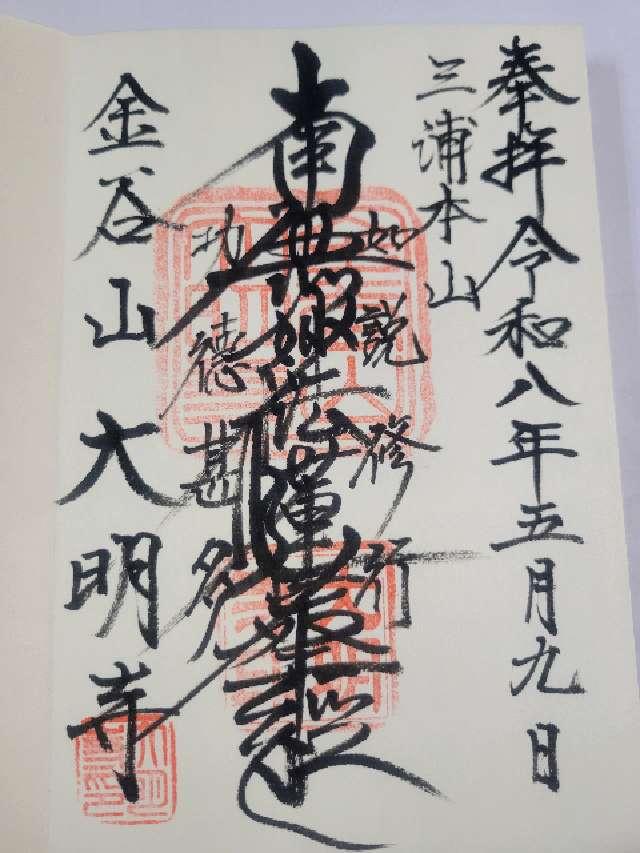 奉拝 令和八年五月九日
三浦本山
如説修行
南無妙法蓮華経
功徳甚多
金谷山 大明寺